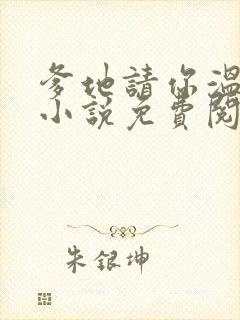 爹地請你溫
小說免費閱
朱銀坤